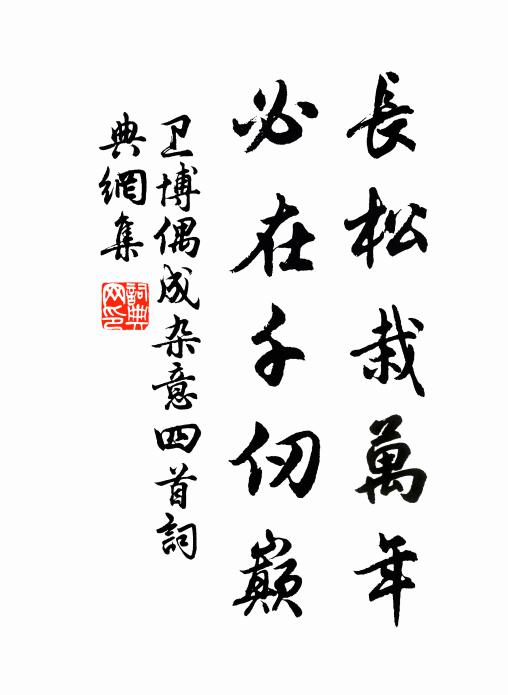 長松栽萬年
必在千仞巔
卫博偶成杂意四首詞
典網集
詞典
网印